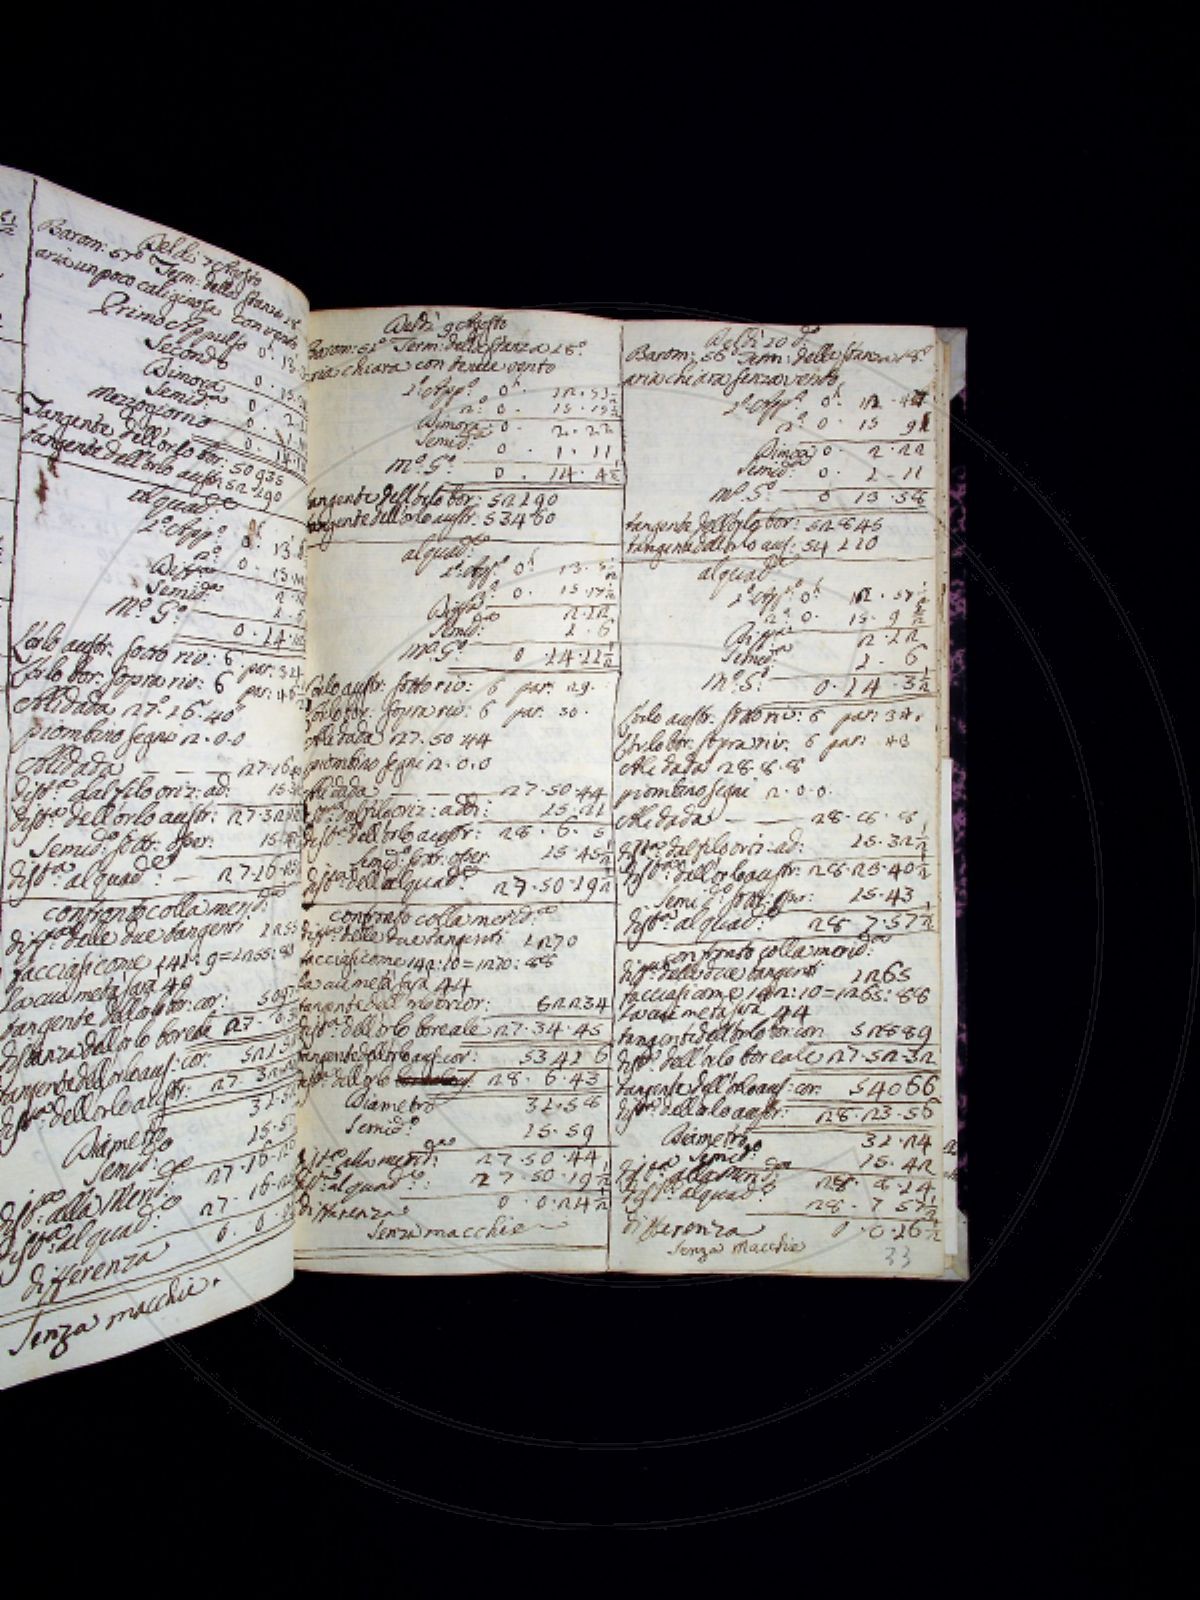 Del di 7 Agosto
Barom: 576 Term: della stanza 18°
aria un poco caliginosa con vento
Primo Appulso 0. 13.
Secondo 0. 15.
Dimora 0. 2.
Semid:
mezzogiorno 0. 14.
Tangente dell'orlo bor: 50935
tangente dell'orlo austr: 52190
al quad:
1° App° 0. 13.
2° 0. 15.
Semid:
M° G° 0. 14.
L'orlo austr: sotto riv: 6 par:
L'orlo bor: sopra riv: 6 par:
Alidada 27° 16' 40"
piombino segno 2.0.0
Alidada 27.16.
dist: dal filo oriz: ad: 15.
dist: dell'orlo austr: 27.32
Semid: sottr: oper: 15.
dist: al quad: 27.16
confronto colla merid:
diff: delle due tangenti 1255
facciasi come 141: 9=1255: 80
la cui metà sarà 40
tangente dell'orlo bor: cor:
distanza dell'orlo boreale 27.
tangente dell'orlo aus: cor:
dist: dell'orlo austr: 27.
Diametro
Semid: 15.5
dist: alla Merid: 27.16
dist: al quad: 27.16
differenza 0.0
Senza macchie.
Del di 9 Agosto
Barom: 51° Term: della stanza 18°
aria chiara con tenue vento
1° App° 0. 12.53½
2° 0. 15.15½
Dimora 0. 2.22
Semid: 0. 1.11
M° G° 0. 14.4½
tangente dell'orlo bor: 52190
tangente dell'orlo austr: 53460
al quad:
1° App° 0. 13.5½
2° 0. 15.17½
Diff: 2.12
Semid: 1.6
M° G° 0.14.11½
L'orlo austr: sotto riv: 6 par: 29.
L'orlo bor: sopra riv: 6 par: 30.
Alidada 27.50.44
piombino segni 2.0.0
Alidada 27.50.44
dist: dal filo oriz: addi: 15.21
dist: dell'orlo austr: 28.6.5
Semid: sottr: oper: 15.45½
dist: dell al quad: 27.50.19½
confronto colla merid:
diff: delle due tangenti 1270
facciasi come 142:10=1270:88
la cui metà sarà 44
tangente dell'orlo bor: cor: 52234
dist: dell'orlo boreale 27.34.45
tangente dell'orlo aus: cor: 53416
dist: dell'orlo 28.6.43
Diametro 31.58
Semid: 15.59
dist: alla merid: 27.50.44
dist: al quad: 27.50.19½
differenza 0.0.24½
Senza macchie
Del di 10 do
Barom: 56° Term: della stanza 18°
aria chiara senza vento
1° App° 0. 12.47
2° 0. 15 9
Dimora 0. 2.22
Semid: 0. 1.11
M° G° 0 13.58
tangente dell'orlo bor: 52845
tangente dell'orlo aus: 54110
al quad:
1° App° 0. 12.57½
2° 0. 15.9½
Diff: 2.12
Semid: 1.6
M° G° 0.14.3½
L'orlo austr: sotto riv: 6 par:
L'orlo bor: sopra riv: 6 par: 43
Alidada 28.8.8
piombino segni 2.0.0
Alidada 28.8.8
dist: dal filo oriz: ad: 15.32½
dist: dell'orlo austr: 28.23.40½
Semid: sottr: oper: 15.43
dist: al quad: 28.7.57½
confronto colla merid:
diff: delle due tangenti 1265
facciasi come 142:10=1265:88
la cui metà sarà 44
tangente dell'orlo bor: cor: 52889
dist: dell'orlo boreale 27.52.32
tangente dell'orlo aus: cor: 54066
dist: dell'orlo austr: 28.23.56
Diametro 31.24
Semid: 15.42
dist: alla merid: 28.8.14
dist: al quad: 28.7 57½
differenza 0.0.16½
Senza macchie
33